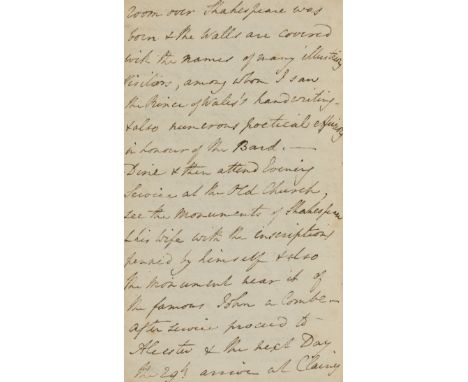 room over Shakespeare was
born & the Walls are covered
with the names of many illustrious
visitors, among whom I saw
the Prince of Wales's handwriting -
& also numerous poetical effusions
in honour of the Bard. —
Dine & then attend Evening
Service at the Old Church,
see the Monuments of Shakespeare
& his wife with the inscriptions
penned by himself & also
the Monument near it of
the famous John a Combe -
After service proceed to
Alcester & the next Day
the 29th arrive at